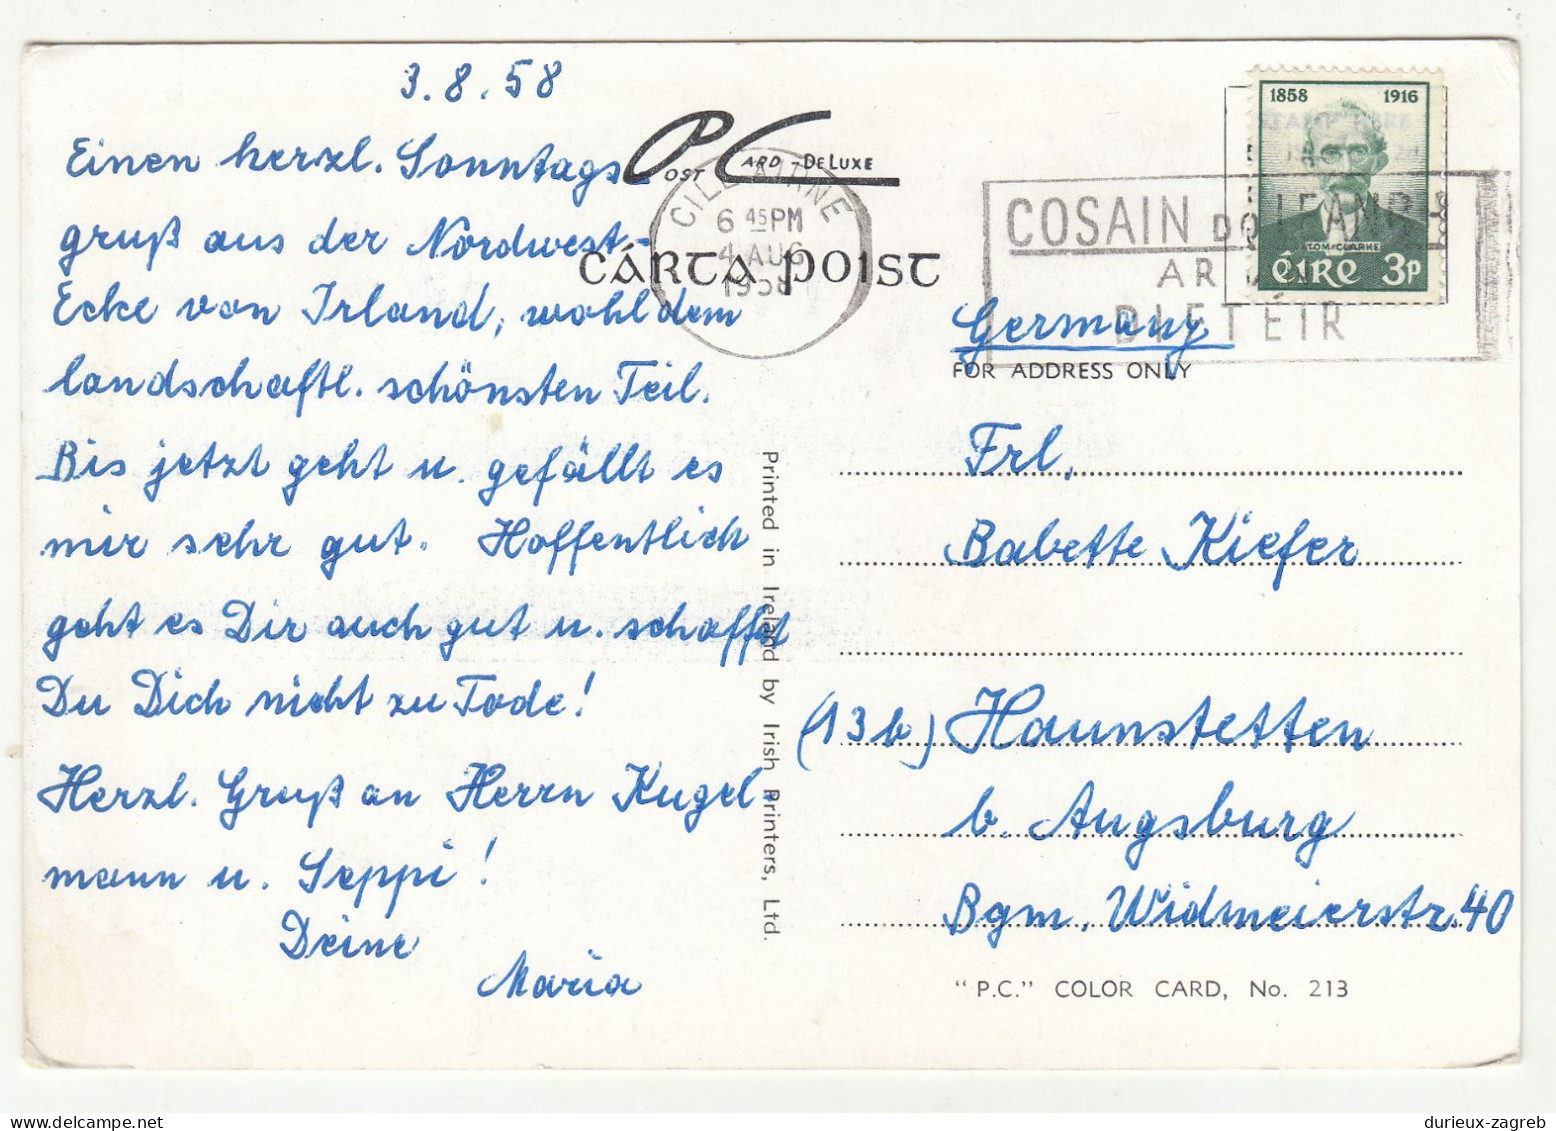 3.8.58
Einen herzl. Sonntags-
gruß aus der Nordwest-
Ecke von Irland, wohl dem
landschaftl. schönsten Teil.
Bis jetzt geht u. gefällt es
mir sehr gut. Hoffentlich
geht es Dir auch gut u. schaffst
Du Dich nicht zu Tode!
Herzl. Gruß an Herrn Kugel-
mann u. Seppi!
Deine
Maria
POST CARD - DE LUXE
CÁRTA POIST
6 45PM
4 AUG
1958
COSAIN DO
AR
DIFTÉIR
1858 1916
TOM CLARKE
ÉIRE 3p
Germany
FOR ADDRESS ONLY
Frl.
Babette Kiefer
(13b) Haunstetten
b. Augsburg
Bgm. Widmeierstr. 40
"P.C." COLOR CARD, No. 213
Printed in Ireland by Irish Printers, Ltd.
durieux-zagreb